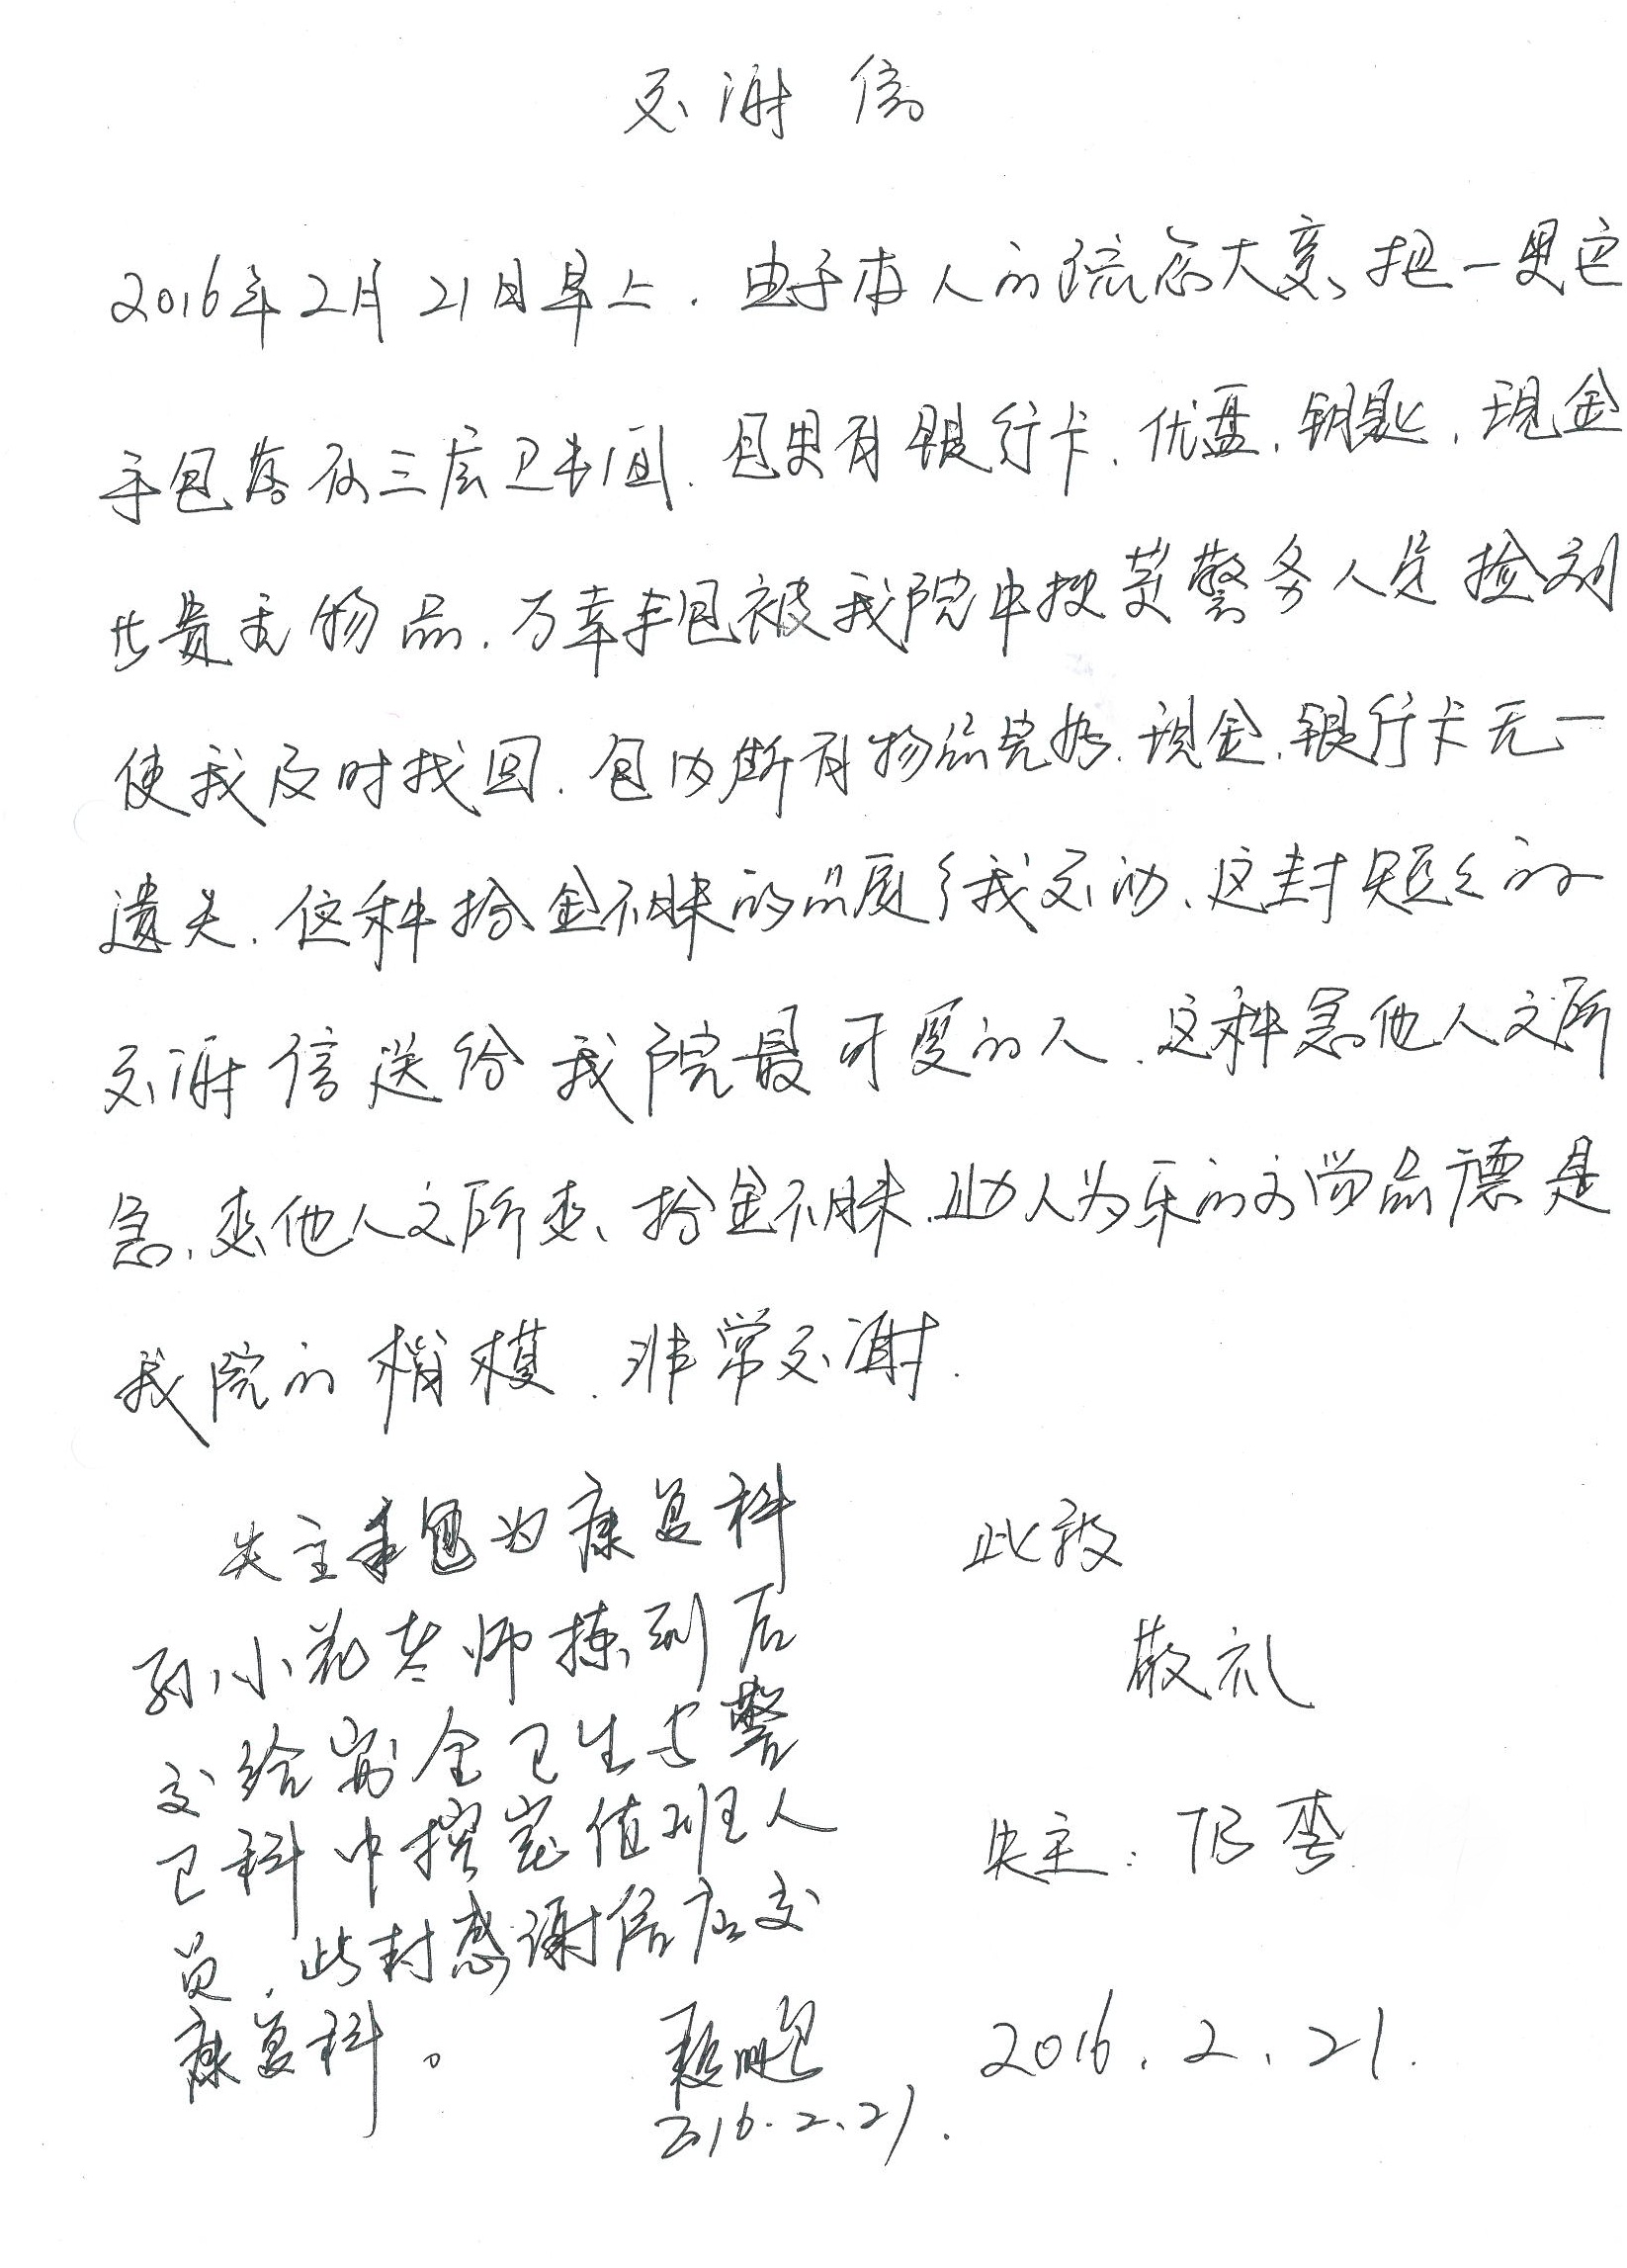 感谢信
2016年2月21日早上.由于本人的疏忽大意,把一黑色
手包落在三层卫生间.包里有银行卡.优盘.钥匙.现金
等贵重物品.万幸手包被我院中控室警务人员捡到
使我及时找回.包内所有物品完好.现金.银行卡无一
遗失.这种拾金不昧的品质令我感动.这封短短的
感谢信送给我院最可爱的人.这种急他人之所
急.想他人之所想、拾金不昧.助人为乐的高尚品德是
我院的楷模.非常感谢.
失主手包为康复科
孙小花老师拣到后
交给安全卫生与警
卫科中控室值班人
员,此封感谢信应交
康复科。
此致
敬礼
失主:TB李
2016.2.21.
2016.2.21.